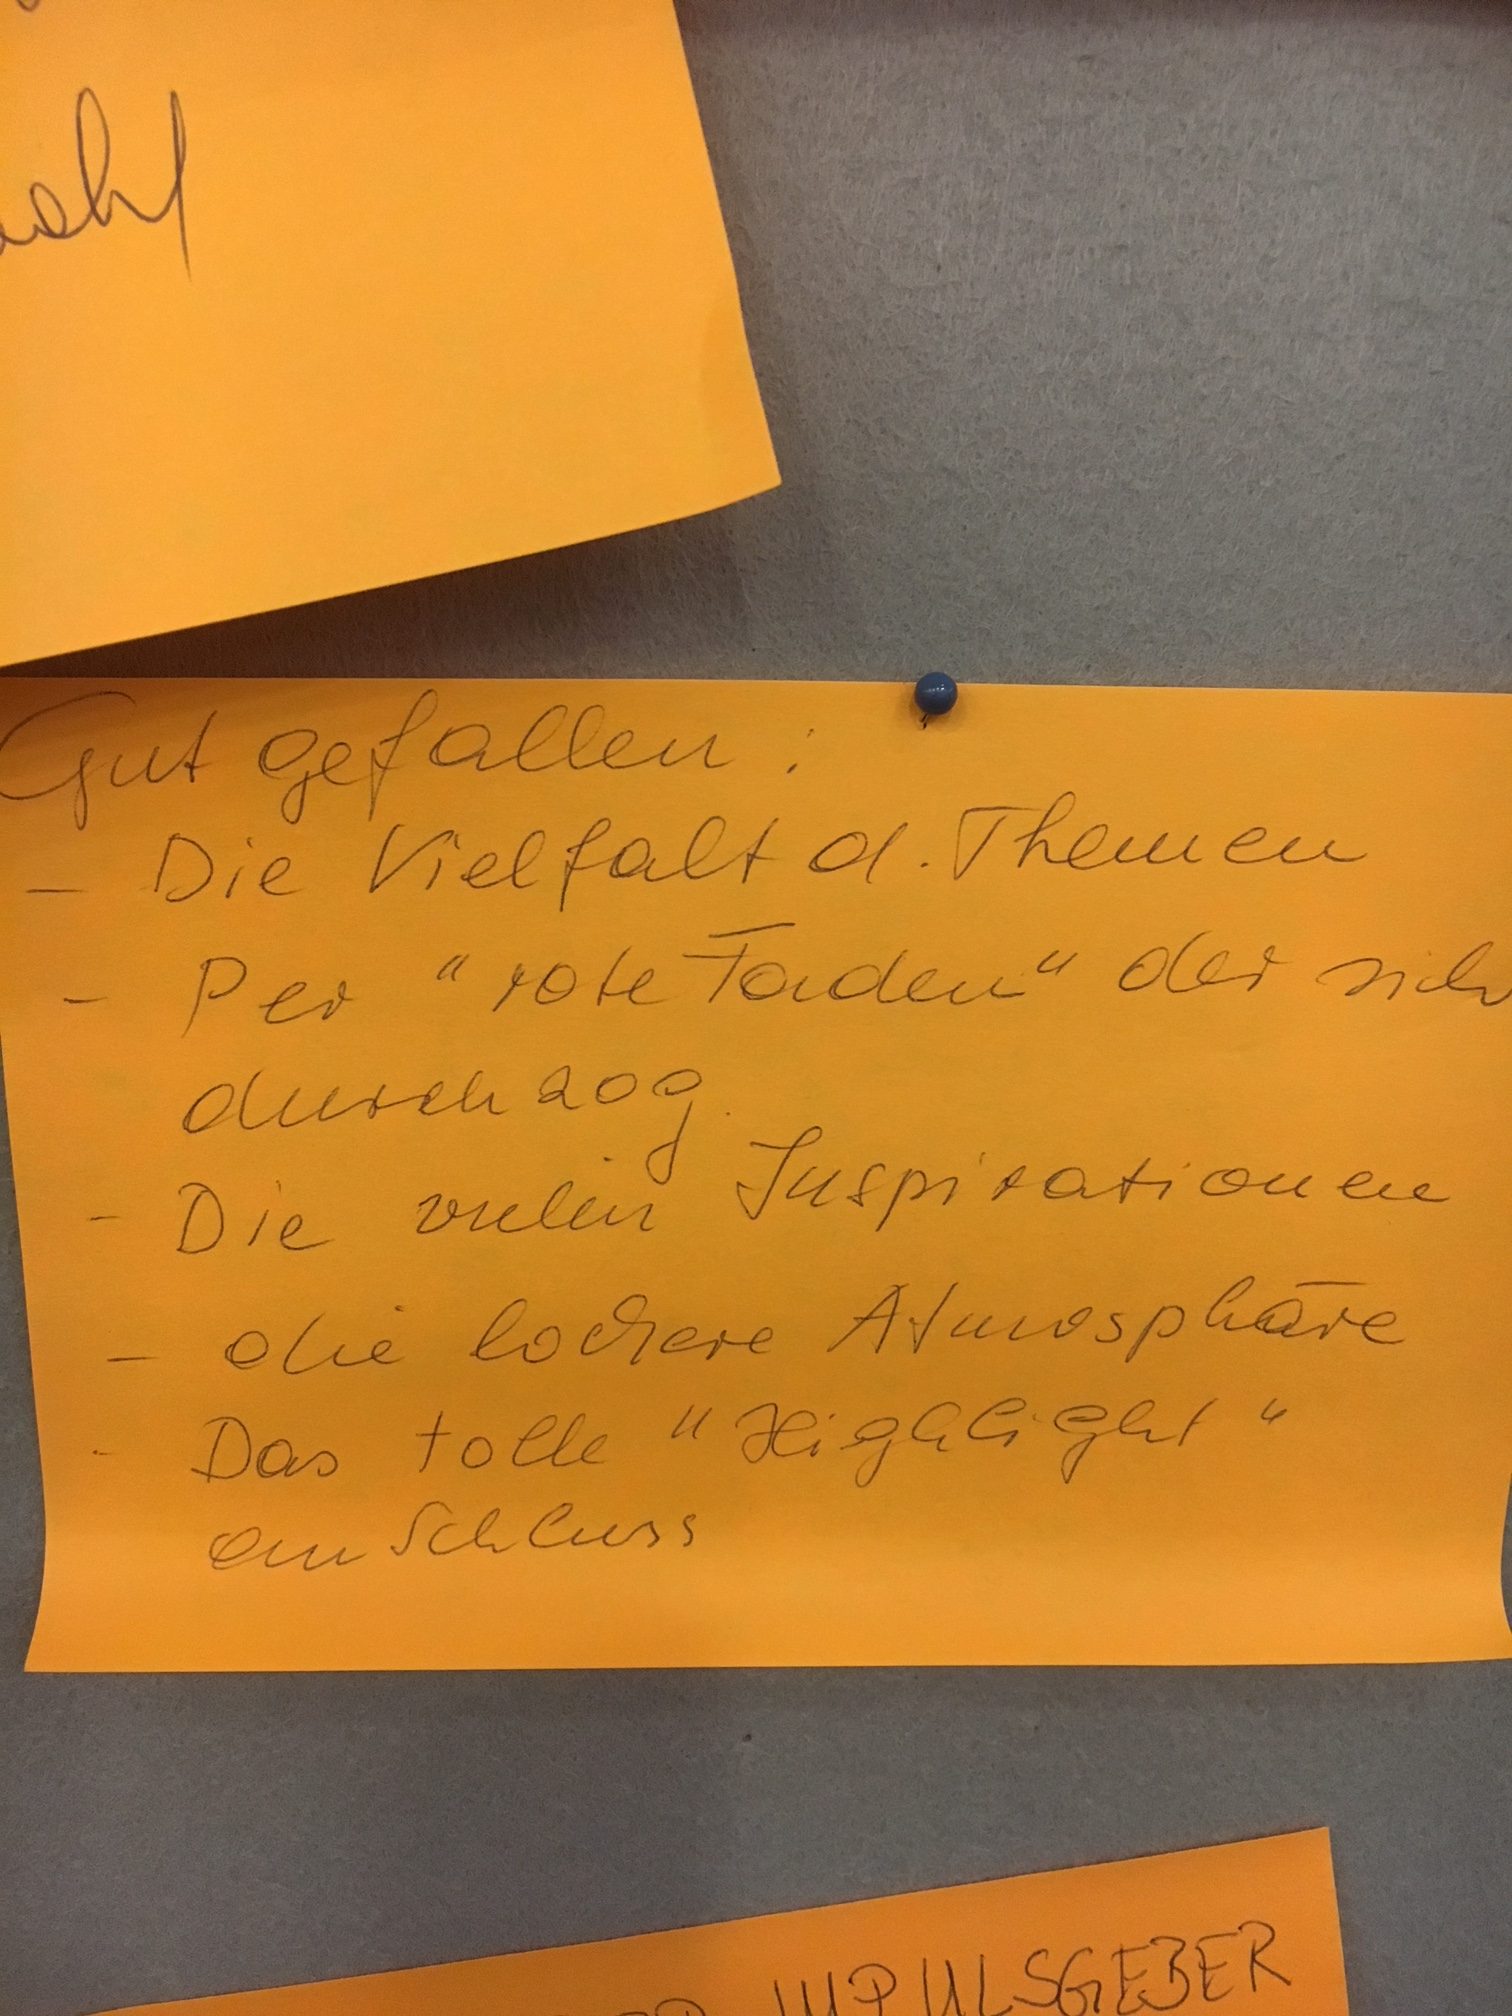 Gut gefallen :
- Die Vielfalt d. Themen
- Der "rote Faden" der sich
durchzog.
- Die vielen Inspirationen
- die lockere Atmosphäre
- Das tolle "Highlight"
am Schluss
IMPULSGEBER